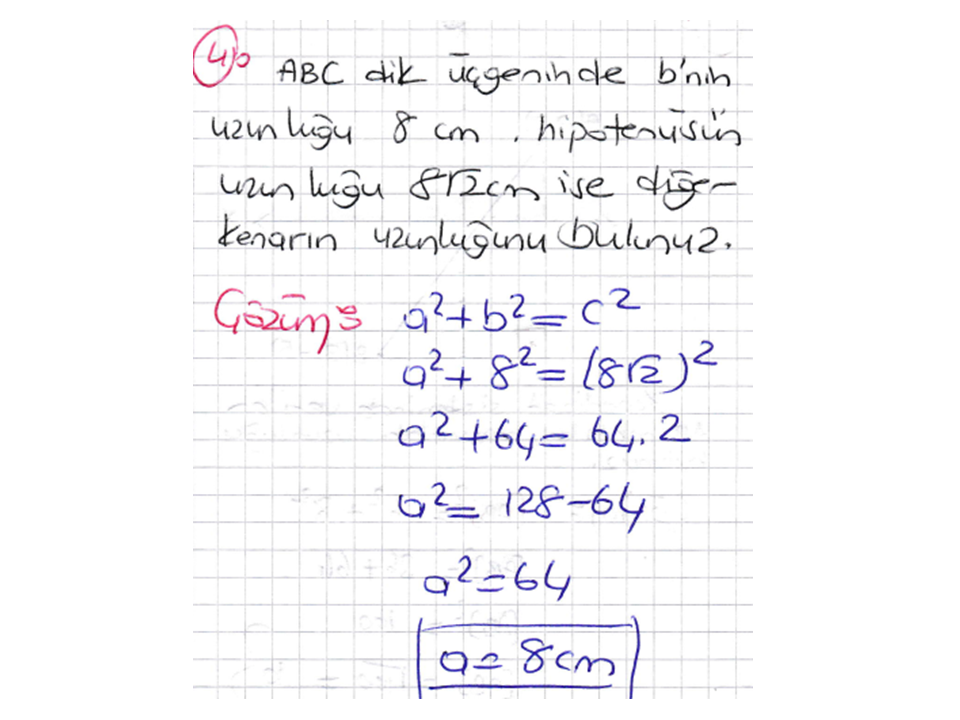 4)
ABC dik üçgeninde b'nin
uzunluğu 8 cm, hipotenüsün
uzunluğu 8√2cm ise diğer
kenarın uzunluğunu bulunuz.
Çözüm: a²+b²=c²
a²+8²=(8√2)²
a²+64=64.2
a²=128-64
a²=64
a=8cm